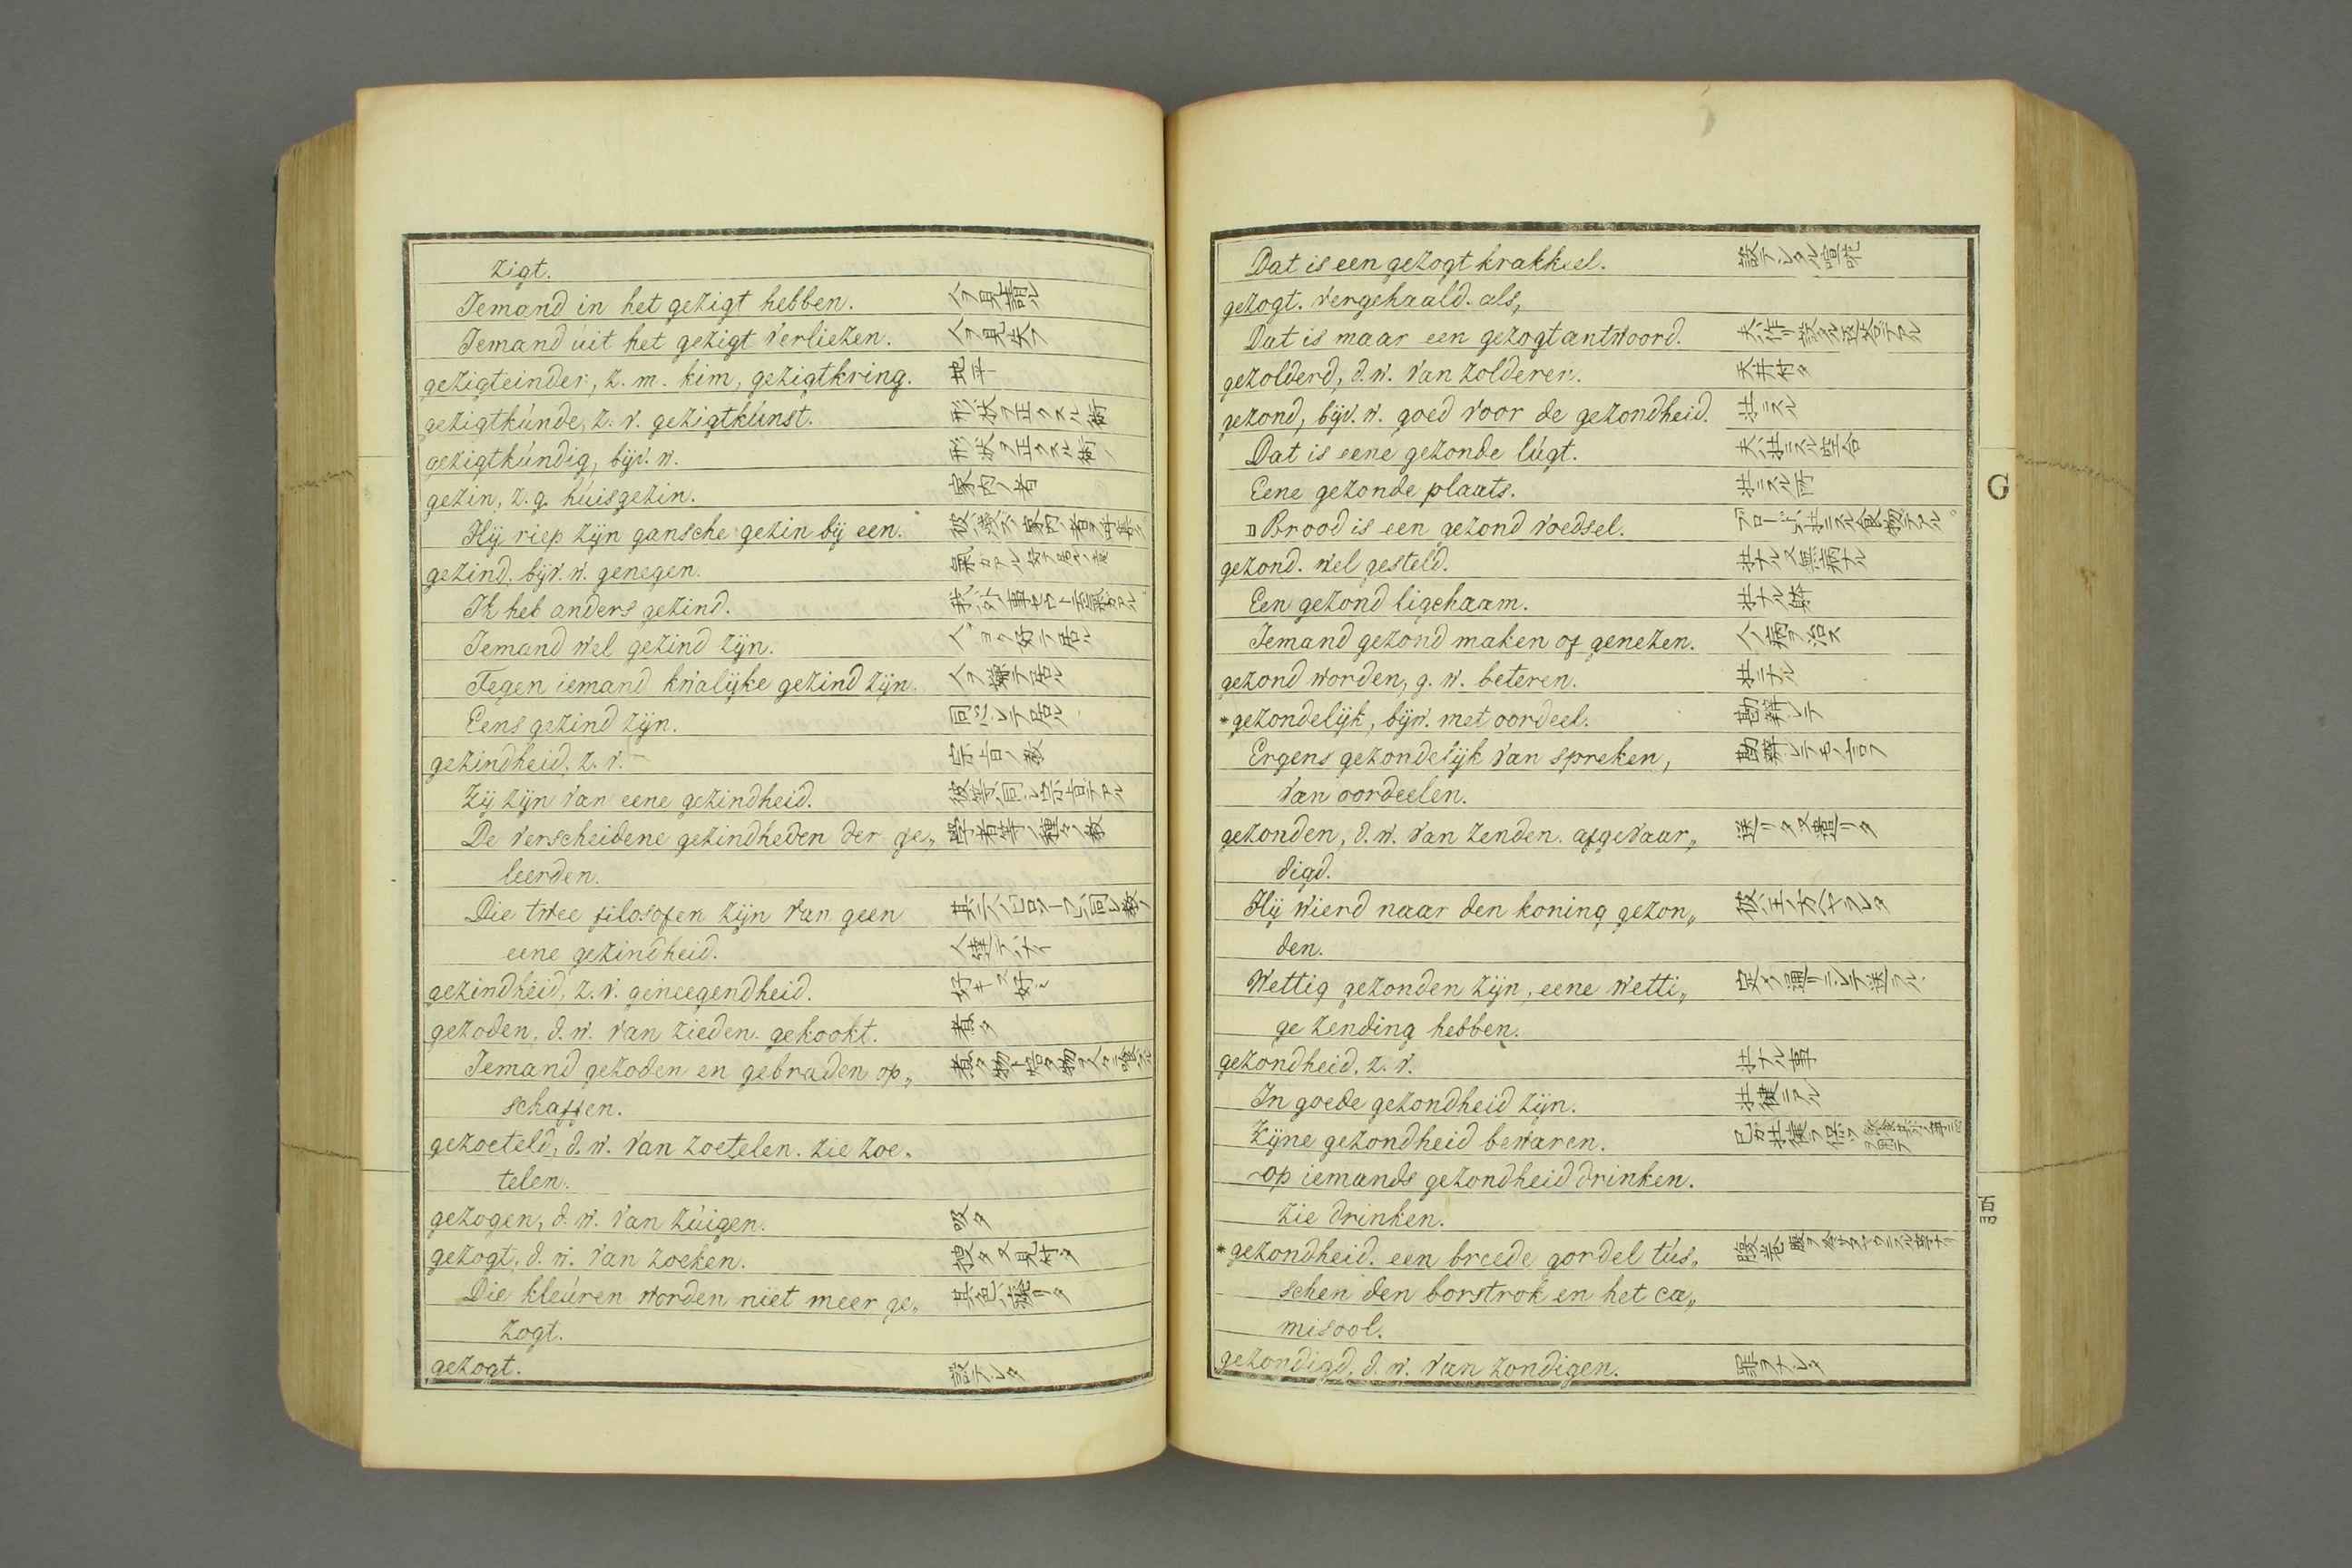 zigt.
Iemand in het gezigt hebben. 人ヲ見認ル
Iemand úit het gezigt verliezen. 人ヲ見失フ
gezigteinder, z. m. kim, gezigtkring. 地平
gezigtkúnde, z. v. gezigtkúnst. 形状ヲ正クスル術
gezigtkúndig, bijv. w. 形状ヲ正クスル術ノ
gezin, z. g. húisgezin. 家内ノ者
Hij riep zijn gansche gezin bij een.
gezind. bijv. w. genegen.
Ik heb anders gezind.
Iemand wel gezind zijn. 人ヲヨク好テ居ル
Tegen iemand kwalijke gezind zijn. 人ヲ嫌テ居ル
Eens gezind zijn. 同心シテ居ル
gezindheid, z. v. 宗旨ノ教
Zij zijn van eene gezindheid. 彼等ハ同シ宗旨テアル
De verscheidene gezindheden der ge„ 學者等ノ種々ノ教
leerden.
Die twee filosofen zijn van geen
eene gezindheid. 人達テナイ
gezindheid, z. v. geneegendheid. 好キ又好ミ
gezoden, d. w. van zieden. gekookt. 煮タ
Iemand gezoden en gebraden op„
schaffen.
gezoeteld, d. w. van zoetelen. zie zoe„
telen.
gezogen, d. w. van zúigen. 吸タ
gezogt, d. w. van zoeken. 捜タ又見付タ
Die kleúren worden niet meer ge„ 其色ハ廃リタ
zogt.
gezogt. 設テシタ
Dat is een gezogt krakkeel. 設テシタル喧𠵅
gezogt. vergehaald. als,
Dat is maar een gezogt antwoord. 夫ハ作リ設タル返答テアル
gezolderd, d. w. van zolderen. 天井付タ
gezond, bijv. w. goed voor de gezondheid. 壮ニスル
Dat is eene gezonde lúgt. 夫ハ壮ニスル空合
Eene gezonde plaats. 壮ニスル所
Brood is een gezond voedsel. ブロートハ壮ニスル食物テアル。
gezond. wel gesteld. 壮ナル又無病ナル
Een gezond ligchaam. 壮ナル躰
Iemand gezond maken of genezen. 人ノ病ヲ治ス
gezond worden, g. w. beteren. 壮ニナル
*gezondelijk, bijw. met oordeel. 勘辨シテ
Ergens gezondelijk van spreken, 勘辨シテモノ言フ
van oordeelen.
gezonden, d. w. van zenden. afgevaar„ 送リタ又遣リタ
digd.
Hij wierd naar den koning gezon„ 彼ハ王ノ方ヘヤラレタ
den.
Wettig gezonden zijn, eene wetti„ 定メノ通リニシテ送ラル
ge zending hebben.
gezondheid, z. v. 壮ナル事
In goede gezondheid zijn. 壮健ニアル
Zijne gezondheid bewaren. 己カ壮健ヲ保ツ
op iemands gezondheid drinken.
zie drinken.
*gezondheid. een breede gordel tús„ 腹巻
schen den borstrok en het ca„
misool.
gezondigd, d. w. van zondigen. 罪ヲナシタ
G